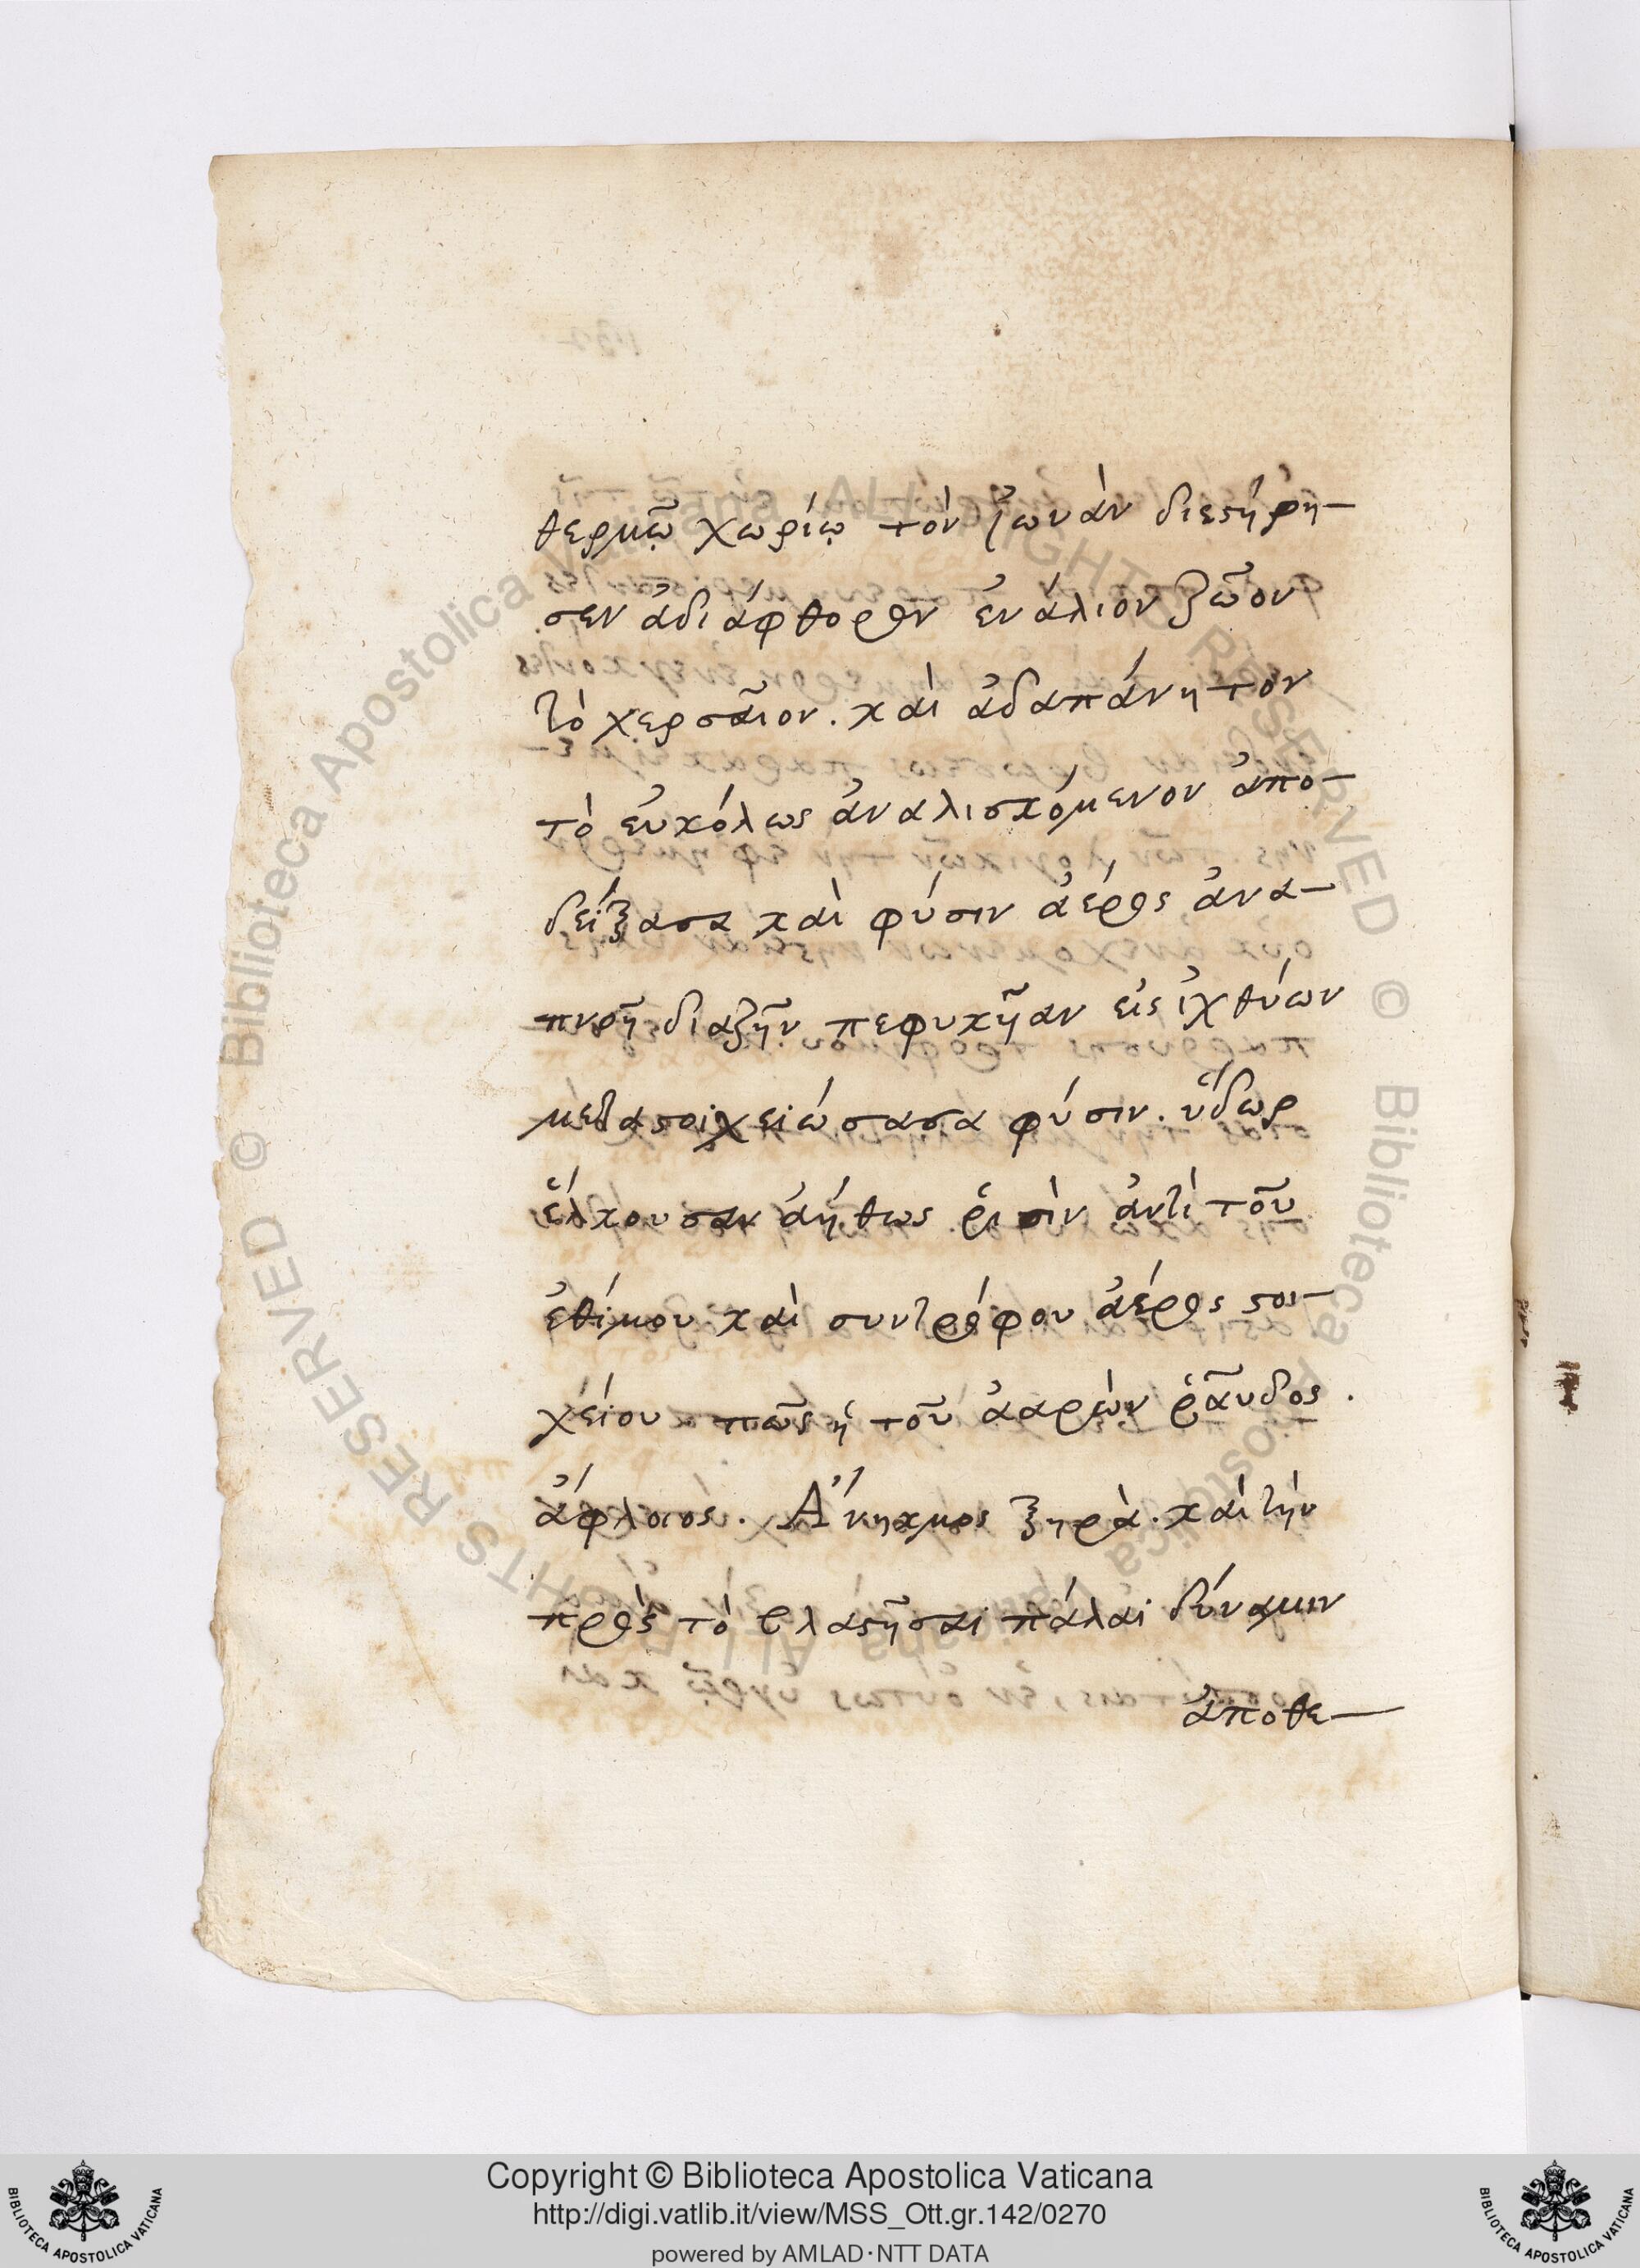 θερμῶ χωρίω τὸν ἰωνὰν διετήρη-
σεν ἀδιάφθορον ἐνάλιον ζῶον
τὸ χερσαῖον. καὶ ἀδαπάνητον
τὸ εὐκόλως ἀναλισκόμενον ἀπο-
δείξασα καὶ φύσιν ἀέρος ἀνα-
πνοῆ διαζῆν πεφυκῆαν εἰς ἰχθύων
μεταστοιχειώσασα φύσιν. ὕδωρ
ἕλκουσαν ἀήθως ῥισὶν ἀντὶ τοῦ
ἐθίμου καὶ συντρόφου ἀέρος στοι-
χείου πῶς ἡ τοῦ ἀαρὼν ῥάυδος.
ἄφλοιος. Ἄνικμος ξηρὰ. καὶ τὴν
πρὸς τὸ βλαστῆσαι πάλαι δύναμιν
ἀποθε-
Copyright © Biblioteca Apostolica Vaticana
http://digi.vatlib.it/view/MSS_Ott.gr.142/0270
powered by AMLAD·NTT DATA
BIBLIOTECA APOSTOLICA VATICANA
BIBLIOTECA APOSTOLICA VATICANA